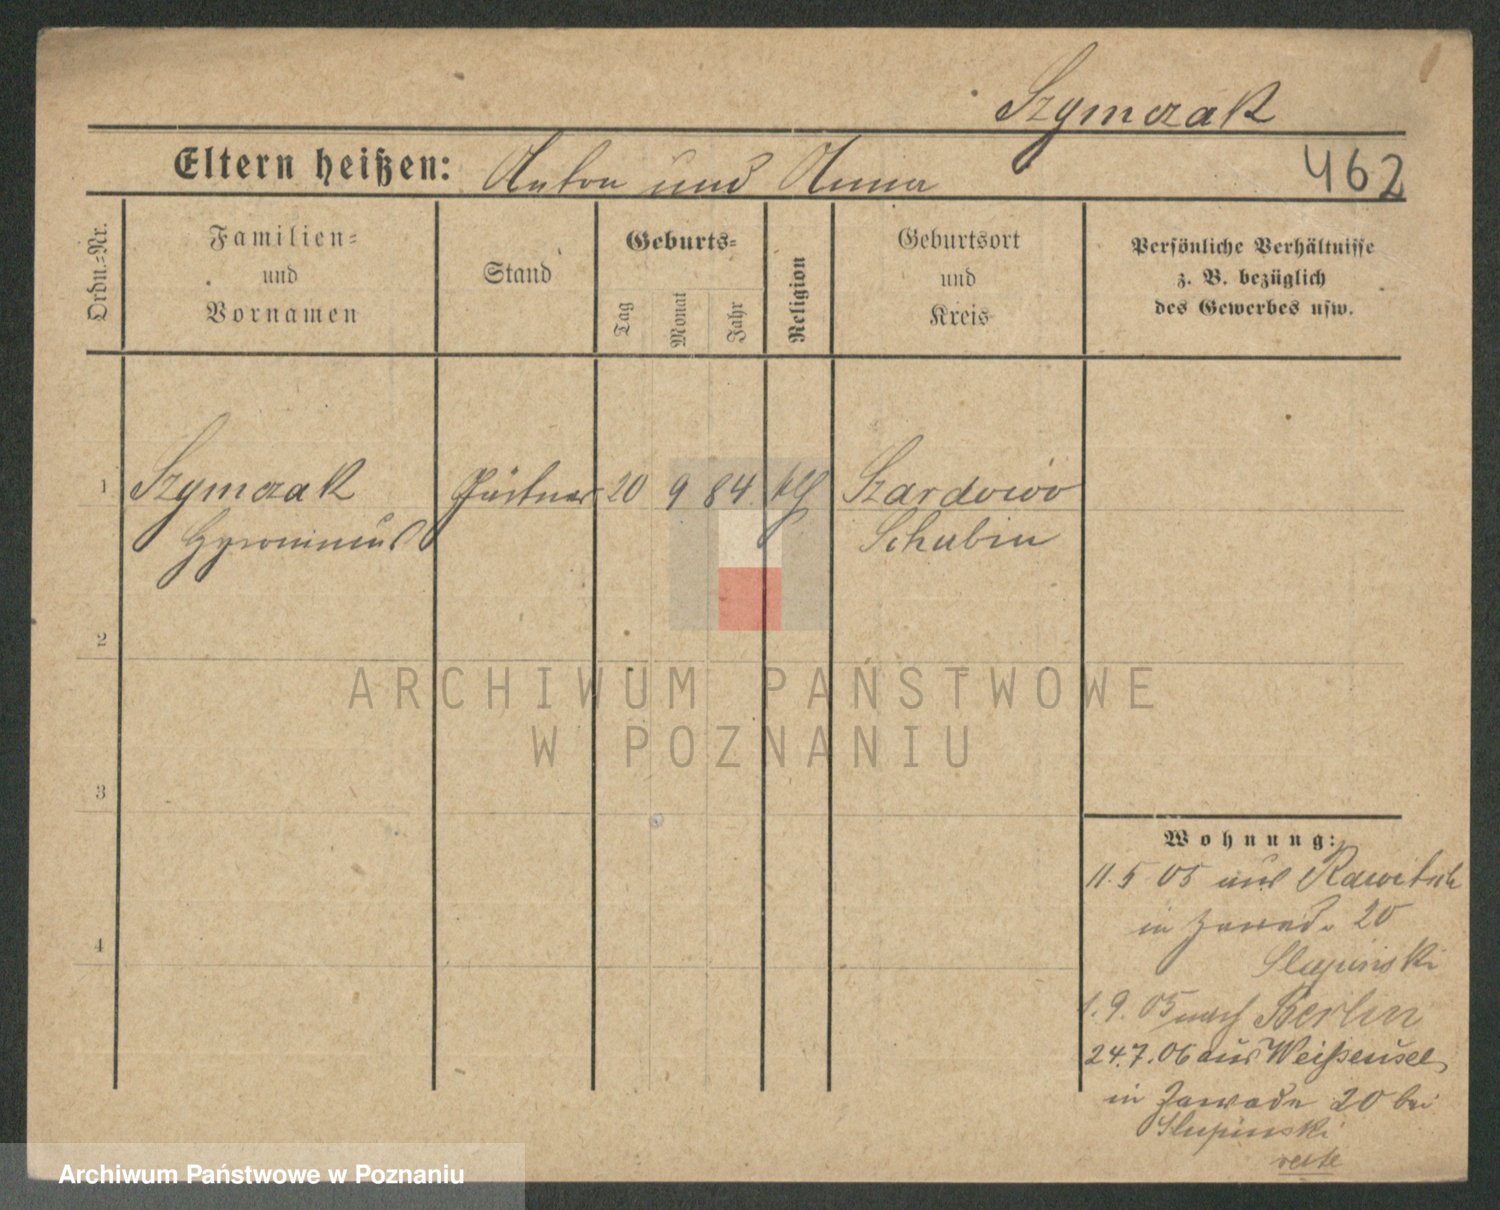 Szymczak
Eltern heißen: Anton und Anna
462
Ordn.=Nr.
Familien=
und
Vornamen
Stand
Geburts=
Tag
Monat
Jahr
Religion
Geburtsort
und
Kreis
Persönliche Verhältnisse
z. B. bezüglich
des Gewerbes usw.
1 Szymczak Gärtner 20 9 84 Szardowo
Hyronimus Schubin
2
3
4
Wohnung:
11.5 05 aus Rawitsch
in Zawade 20
Slupinski
1.9.05 nach Berlin
24.7.06 aus Weißensee
in Zawade 20 bei
Slupinski
ARCHIWUM PAŃSTWOWE
W POZNANIU
Archiwum Państwowe w Poznaniu